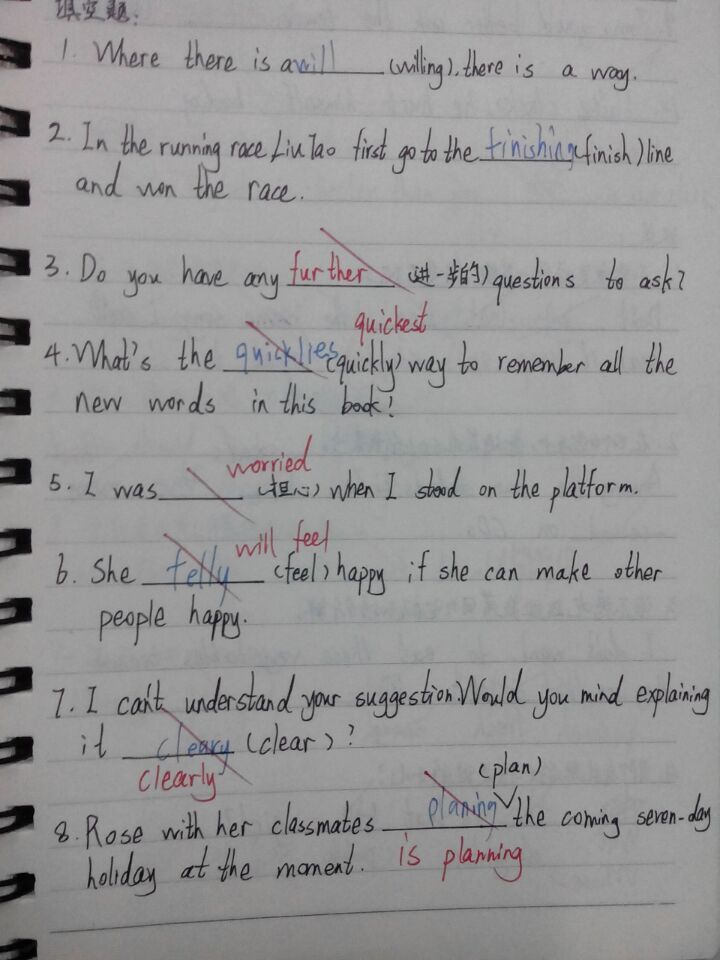 填空题:
1. Where there is a will (willing), there is a way.
2. In the running race Liu Tao first go to the finishing (finish) line
and won the race.
3. Do you have any further (进一步的) questions to ask?
quickest
4. What's the quicklies (quickly) way to remember all the
new words in this book?
worried
5. I was ______ (担心) when I stood on the platform.
will feel
6. She felly (feel) happy if she can make other
people happy.
7. I can't understand your suggestion. Would you mind explaining
it cleary (clear) ?
clearly
(plan)
8. Rose with her classmates planing the coming seven-day
holiday at the moment. is planning